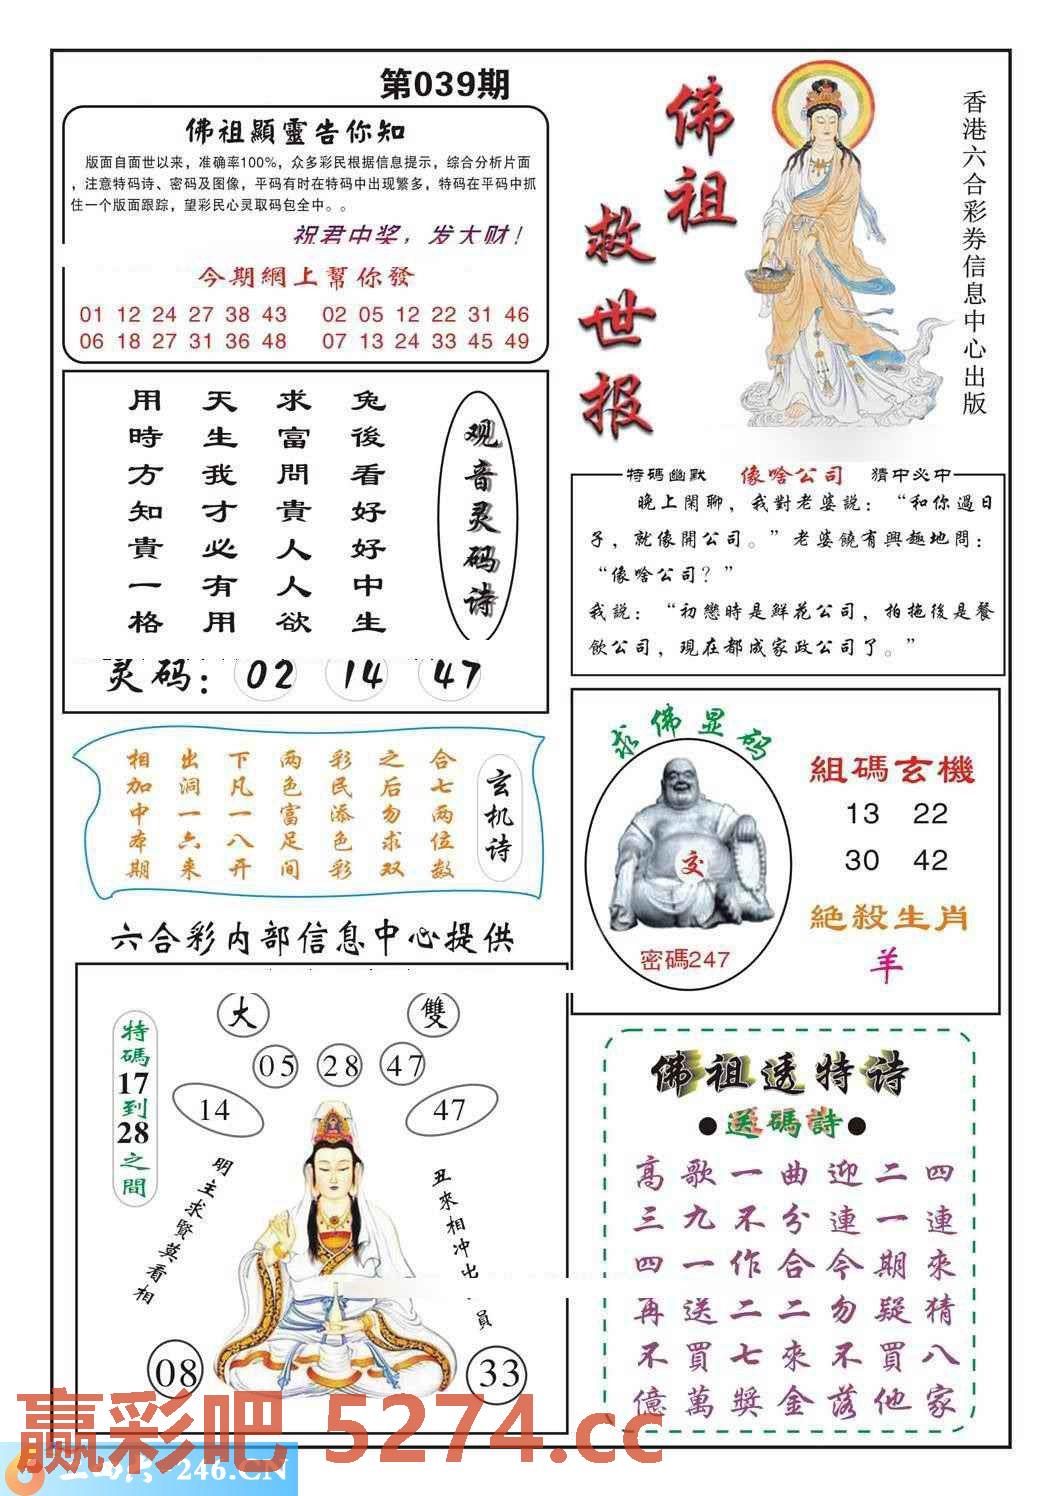 第039期
佛祖顯靈告你知
版面自面世以来，准确率100%，众多彩民根据信息提示，综合分析片面
，注意特码诗、密码及图像，平码有时在特码中出现繁多，特码在平码中抓
住一个版面跟踪，望彩民心灵取码包全中。。
祝君中奖，发大财！
今期網上幫你發
01 12 24 27 38 43 02 05 12 22 31 46
06 18 27 31 36 48 07 13 24 33 45 49
佛祖
救世报
香港六合彩券信息中心出版
观音灵码诗
兔後看好好中生
求富問貴人人欲
天生我才必有用
用時方知貴一格
灵码：02 14 47
特碼幽默 像啥公司 猜中必中
晚上閑聊，我對老婆説：“和你過日
子，就像開公司。”老婆饒有興趣地問：
“像啥公司？”
我説：“初戀時是鮮花公司，拍拖後是餐
飲公司，現在都成家政公司了。”
玄机诗
合七两位数
之后勿求双
彩民添色彩
两色富足间
下凡一八开
出洞一六来
相加中本期
求佛显码
交
密碼247
組碼玄機
13 22
30 42
絶殺生肖
羊
六合彩内部信息中心提供
特碼17到28之間
大 雙
05 28 47
14 47
明主求賢莫看相
丑來相冲出
員
08 33
佛祖透特诗
●送碼詩●
高歌一曲迎二四
三九不分連一連
四一作合今期來
再送二二勿疑猜
不買七來不買八
億萬獎金落他家
赢彩吧 5274.cc
246.CN